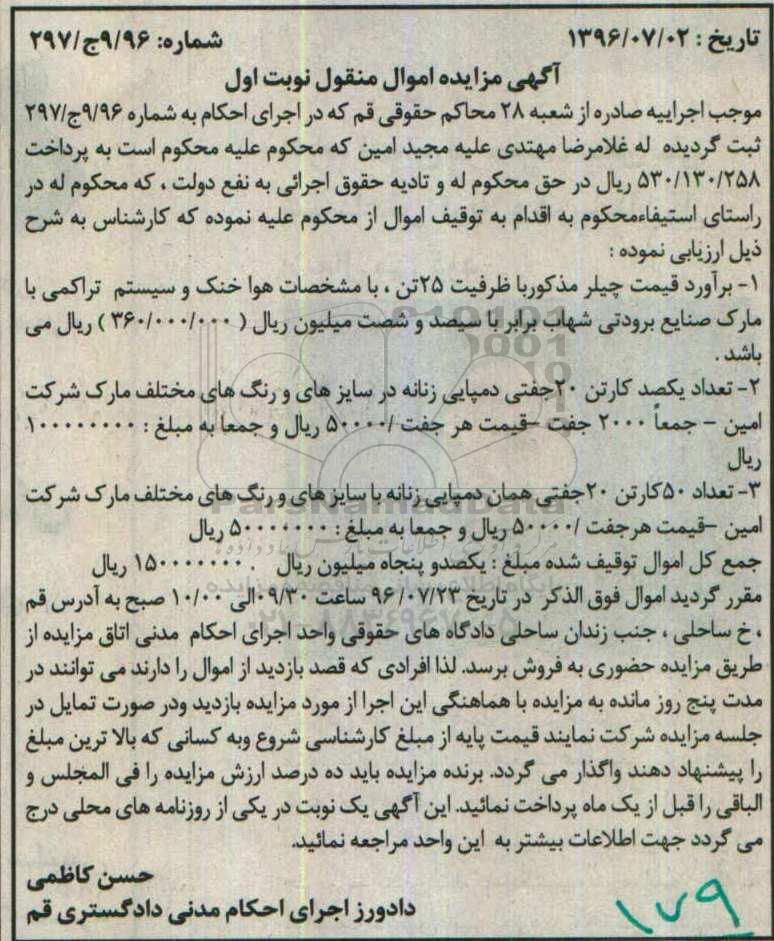 تاریخ : ۱۳۹۶/۰۷/۰۲ شماره: ۹/۹۶ج/۲۹۷
آگهی مزایده اموال منقول نوبت اول
موجب اجراییه صادره از شعبه ۲۸ محاکم حقوقی قم که در اجرای احکام به شماره ۹/۹۶ج/۲۹۷
ثبت گردیده له غلامرضا مهتدی علیه مجید امین که محکوم علیه محکوم است به پرداخت
۵۳۰/۱۳۰/۲۵۸ ریال در حق محکوم له و تادیه حقوق اجرائی به نفع دولت ، که محکوم له در
راستای استیفاءمحکوم به اقدام به توقیف اموال از محکوم علیه نموده که کارشناس به شرح
ذیل ارزیابی نموده :
۱- برآورد قیمت چیلر مذکوربا ظرفیت ۲۵تن ، با مشخصات هوا خنک و سیستم تراکمی با
مارک صنایع برودتی شهاب برابر با سیصد و شصت میلیون ریال ( ۳۶۰/۰۰۰/۰۰۰ ) ریال می
باشد .
۲- تعداد یکصد کارتن ۲۰جفتی دمپایی زنانه در سایز های و رنگ های مختلف مارک شرکت
امین – جمعاً ۲۰۰۰ جفت –قیمت هر جفت /۵۰۰۰۰ ریال و جمعا به مبلغ : ۱۰۰۰۰۰۰۰۰
ریال
۳- تعداد ۵۰کارتن ۲۰جفتی همان دمپایی زنانه با سایز های و رنگ های مختلف مارک شرکت
امین –قیمت هرجفت /۵۰۰۰۰ ریال و جمعا به مبلغ : ۵۰۰۰۰۰۰۰ ریال
جمع کل اموال توقیف شده مبلغ : یکصدو پنجاه میلیون ریال . ۱۵۰۰۰۰۰۰۰ ریال
مقرر گردید اموال فوق الذکر در تاریخ ۹۶/۰۷/۲۳ ساعت ۰۹/۳۰الی ۱۰/۰۰ صبح به آدرس قم
، خ ساحلی ، جنب زندان ساحلی دادگاه های حقوقی واحد اجرای احکام مدنی اتاق مزایده از
طریق مزایده حضوری به فروش برسد. لذا افرادی که قصد بازدید از اموال را دارند می توانند در
مدت پنج روز مانده به مزایده با هماهنگی این اجرا از مورد مزایده بازدید ودر صورت تمایل در
جلسه مزایده شرکت نمایند قیمت پایه از مبلغ کارشناسی شروع وبه کسانی که بالا ترین مبلغ
را پیشنهاد دهند واگذار می گردد. برنده مزایده باید ده درصد ارزش مزایده را فی المجلس و
الباقی را قبل از یک ماه پرداخت نمائید. این آگهی یک نوبت در یکی از روزنامه های محلی درج
می گردد جهت اطلاعات بیشتر به این واحد مراجعه نمائید.
حسن کاظمی
دادورز اجرای احکام مدنی دادگستری قم
۱۷۹
ParsNamadData